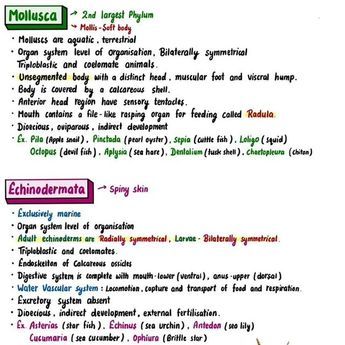 Mollusca → 2nd largest Phylum
→ Mollis-Soft body
• Molluscs are aquatic, terrestrial
• Organ system level of organisation, Bilaterally symmetrical
Triploblastic and coelomate animals.
• Unsegmented body with a distinct head, muscular foot and visceral hump.
• Body is covered by a calcareous shell.
• Anterior head region have sensory tentacles.
• Mouth contains a file-like rasping organ for feeding called Radula.
• Dioecious, oviparous, indirect development
• Ex. Pila (Apple snail), Pinctada (pearl oyster), Sepia (cuttle fish), Loligo (squid)
Octopus (devil fish), Aplysia (sea hare), Dentalium (tusk shell), Chaetopleura (chiton)
Echinodermata → Spiny skin
• Exclusively marine
• Organ system level of organisation
• Adult echinoderms are Radially symmetrical, Larvae - Bilaterally symmetrical.
• Triploblastic and coelomates.
• Endoskeleton of Calcareous ossicles
• Digestive system is complete with mouth-lower (ventral), anus-upper (dorsal)
• Water Vascular system: Locomotion, capture and transport of food and respiration.
• Excretory system absent
• Dioecious, indirect development, external fertilisation.
• Ex. Asterias (star fish), Echinus (sea urchin), Antedon (sea lily)
Cucumaria (sea cucumber), Ophiura (Brittle star)